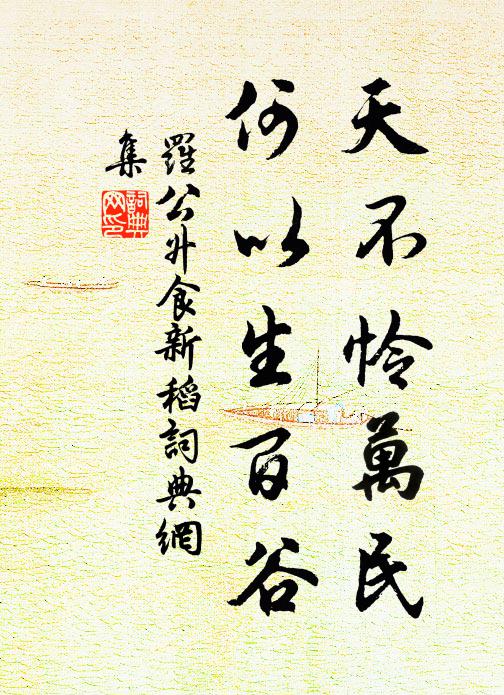 天不怜萬民
何以生百谷
羅公升食新稻詞典網
集
詞典
网印